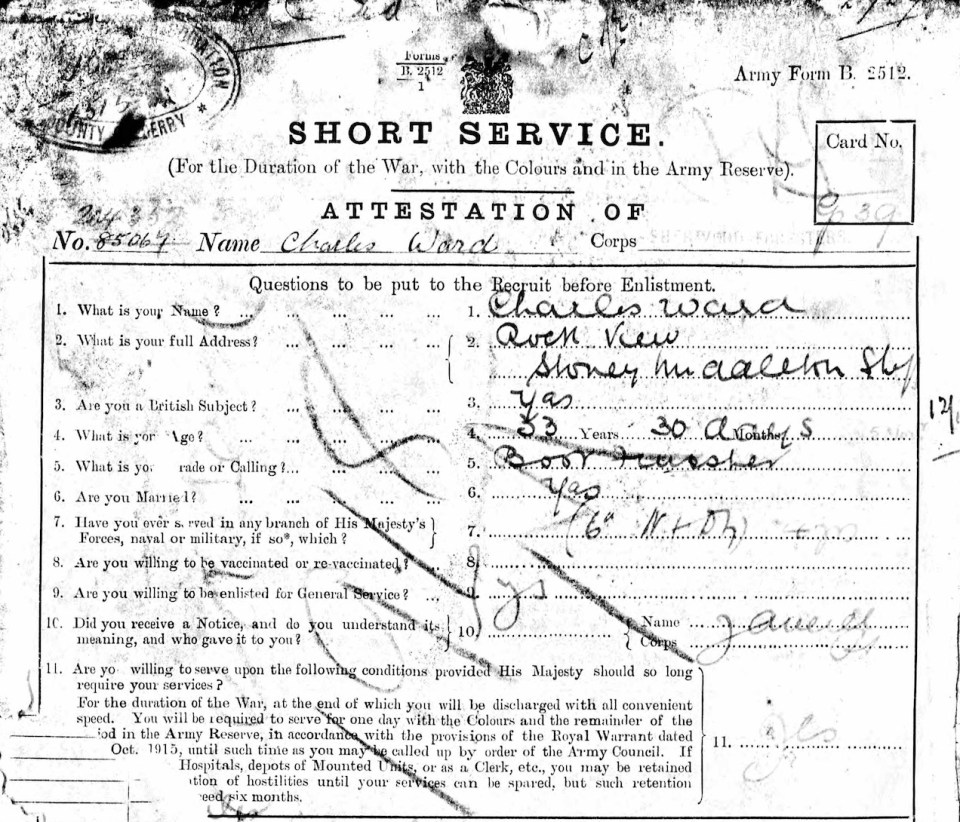 Forms
B. 2512
1
Army Form B. 2512.
COUNTY DERBY
SHORT SERVICE.
(For the Duration of the War, with the Colours and in the Army Reserve).
Card No.
639
ATTESTATION OF
No. 85067 Name Charles Ward Corps
Questions to be put to the Recruit before Enlistment.
1. What is your Name? ... ... ... ... 1. Charles Ward
2. What is your full Address? 2. Rock View
Stoney Middleton
3. Are you a British Subject? ... ... ... ... 3. Yas
4. What is yor Age? ... ... ... 4. 33 Years 30 days Months
5. What is yo rade or Calling?... ... ... 5. Boot
6. Are you Married? ... ... ... ... 6. Yas
7. Have you ever served in any branch of His Majesty's
Forces, naval or military, if so*, which? 7. (6th N + Dy)
8. Are you willing to be vaccinated or re-vaccinated? ... 8.
9. Are you willing to be enlisted for General Service? ... 9. ys
10. Did you receive a Notice, and do you understand its
meaning, and who gave it to you? 10. Name
Corps
11. Are yo willing to serve upon the following conditions provided His Majesty should so long
require your services?
For the duration of the War, at the end of which you will be discharged with all convenient
speed. You will be required to serve for one day with the Colours and the remainder of the
iod in the Army Reserve, in accordance with the provisions of the Royal Warrant dated
Oct. 1915, until such time as you may be called up by order of the Army Council. If
Hospitals, depots of Mounted Units, or as a Clerk, etc., you may be retained
ation of hostilities until your services can be spared, but such retention
eed six months.
11. yes